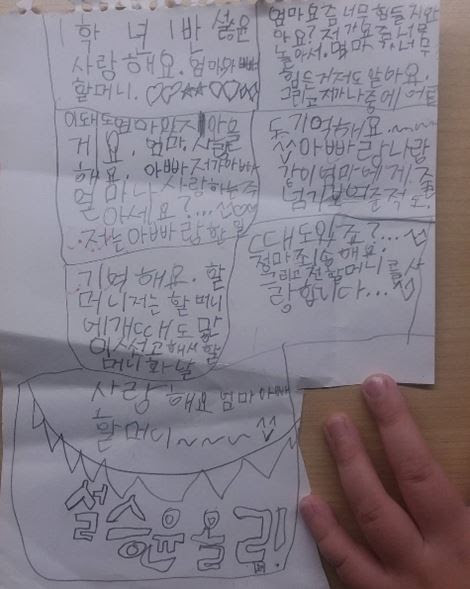 1학년 1반 설승윤
사랑해요. 엄마아빠
할머니. ♡♡☆☆♡♡☆♡
엄마요즘너무힘들지와
아요? 저가요즘너무
놀아서. 엄마 너무
힘든거저도알아요.
그리고저가나중에어른
이돼도엄마와 아올
게요. 엄마. 사랑
해요. 아빠저가아빠
얼마나 사랑하는줄
아세요?...
저는아빠랑한일
도기억해요.~~~
아빠랑나랑
같이엄마에게
도.
기억해요. 할
머니저는할머니
에개때도많
이 해서할
머니화날
때도있죠?...
정마죄송해요.
그리고전할머니를사
랑합니다...♡
사랑해요엄마아빠
할머니~~~
설승윤올림!